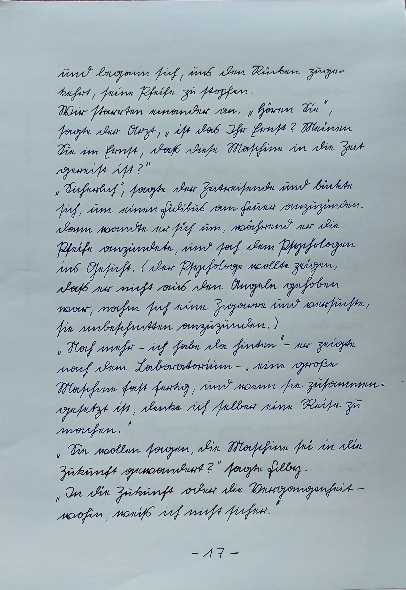 und begann sich, uns den Rücken zuge-
kehrt, seine Pfeife zu stopfen.
Wir starrten einander an. „Hören Sie",
sagte der Arzt, „ist das Ihr Ernst? Meinen
Sie im Ernst, daß diese Maschine in die Zeit
gereist ist?"
„Sicherlich", sagte der Zeitreisende und bückte
sich, um einen Fidibus am Feuer anzuzünden.
Dann wandte er sich um, während er die
Pfeife anzündete, und sah dem Psychologen
ins Gesicht. (Der Psychologe wollte zeigen,
daß er nicht aus den Angeln gehoben
war, nahm sich eine Zigarre und versuchte,
sie unbeschnitten anzuzünden.)
„Noch mehr - ich habe da hinten" - er zeigte
nach dem Laboratorium -, „eine große
Maschine fast fertig, und wenn sie zusammen-
gesetzt ist, denke ich selber eine Reise zu
machen."
„Sie wollen sagen, die Maschine sei in die
Zukunft gewandert?" sagte Filby.
„In die Zukunft oder die Vergangenheit -
wohin, weiß ich nicht sicher."
- 17 -